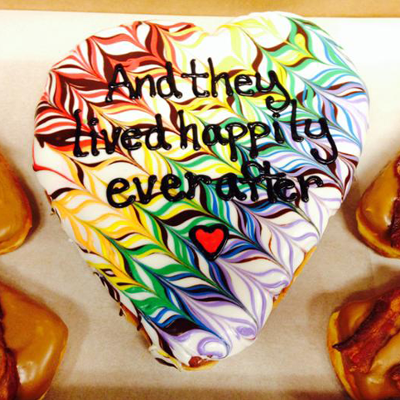 And they
lived happily
ever after